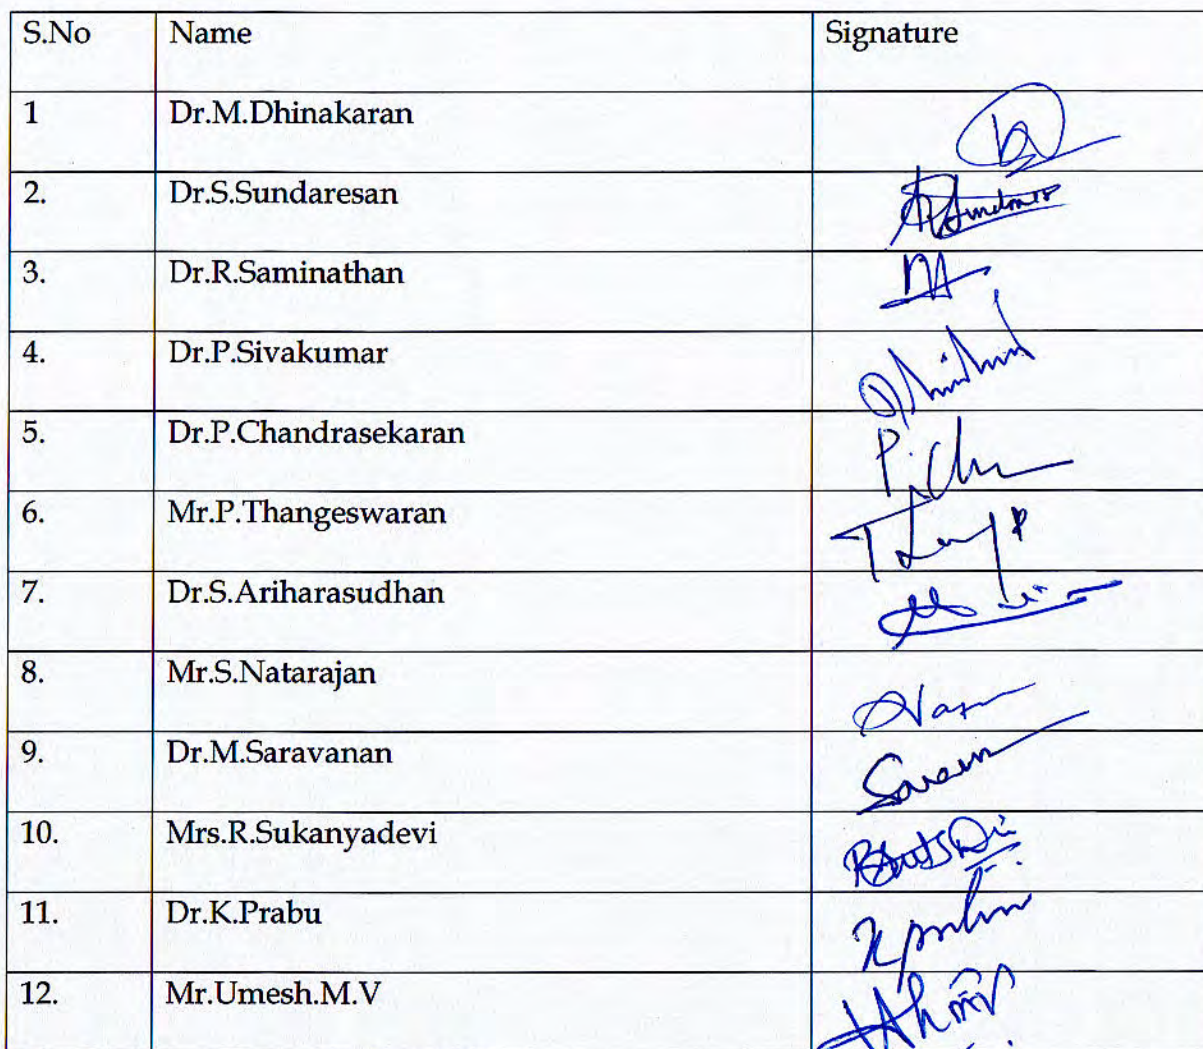 S.No Name Signature
1 Dr.M.Dhinakaran
2. Dr.S.Sundaresan
3. Dr.R.Saminathan
4. Dr.P.Sivakumar
5. Dr.P.Chandrasekaran
6. Mr.P.Thangeswaran
7. Dr.S.Ariharasudhan
8. Mr.S.Natarajan
9. Dr.M.Saravanan
10. Mrs.R.Sukanyadevi
11. Dr.K.Prabu
12. Mr.Umesh.M.V